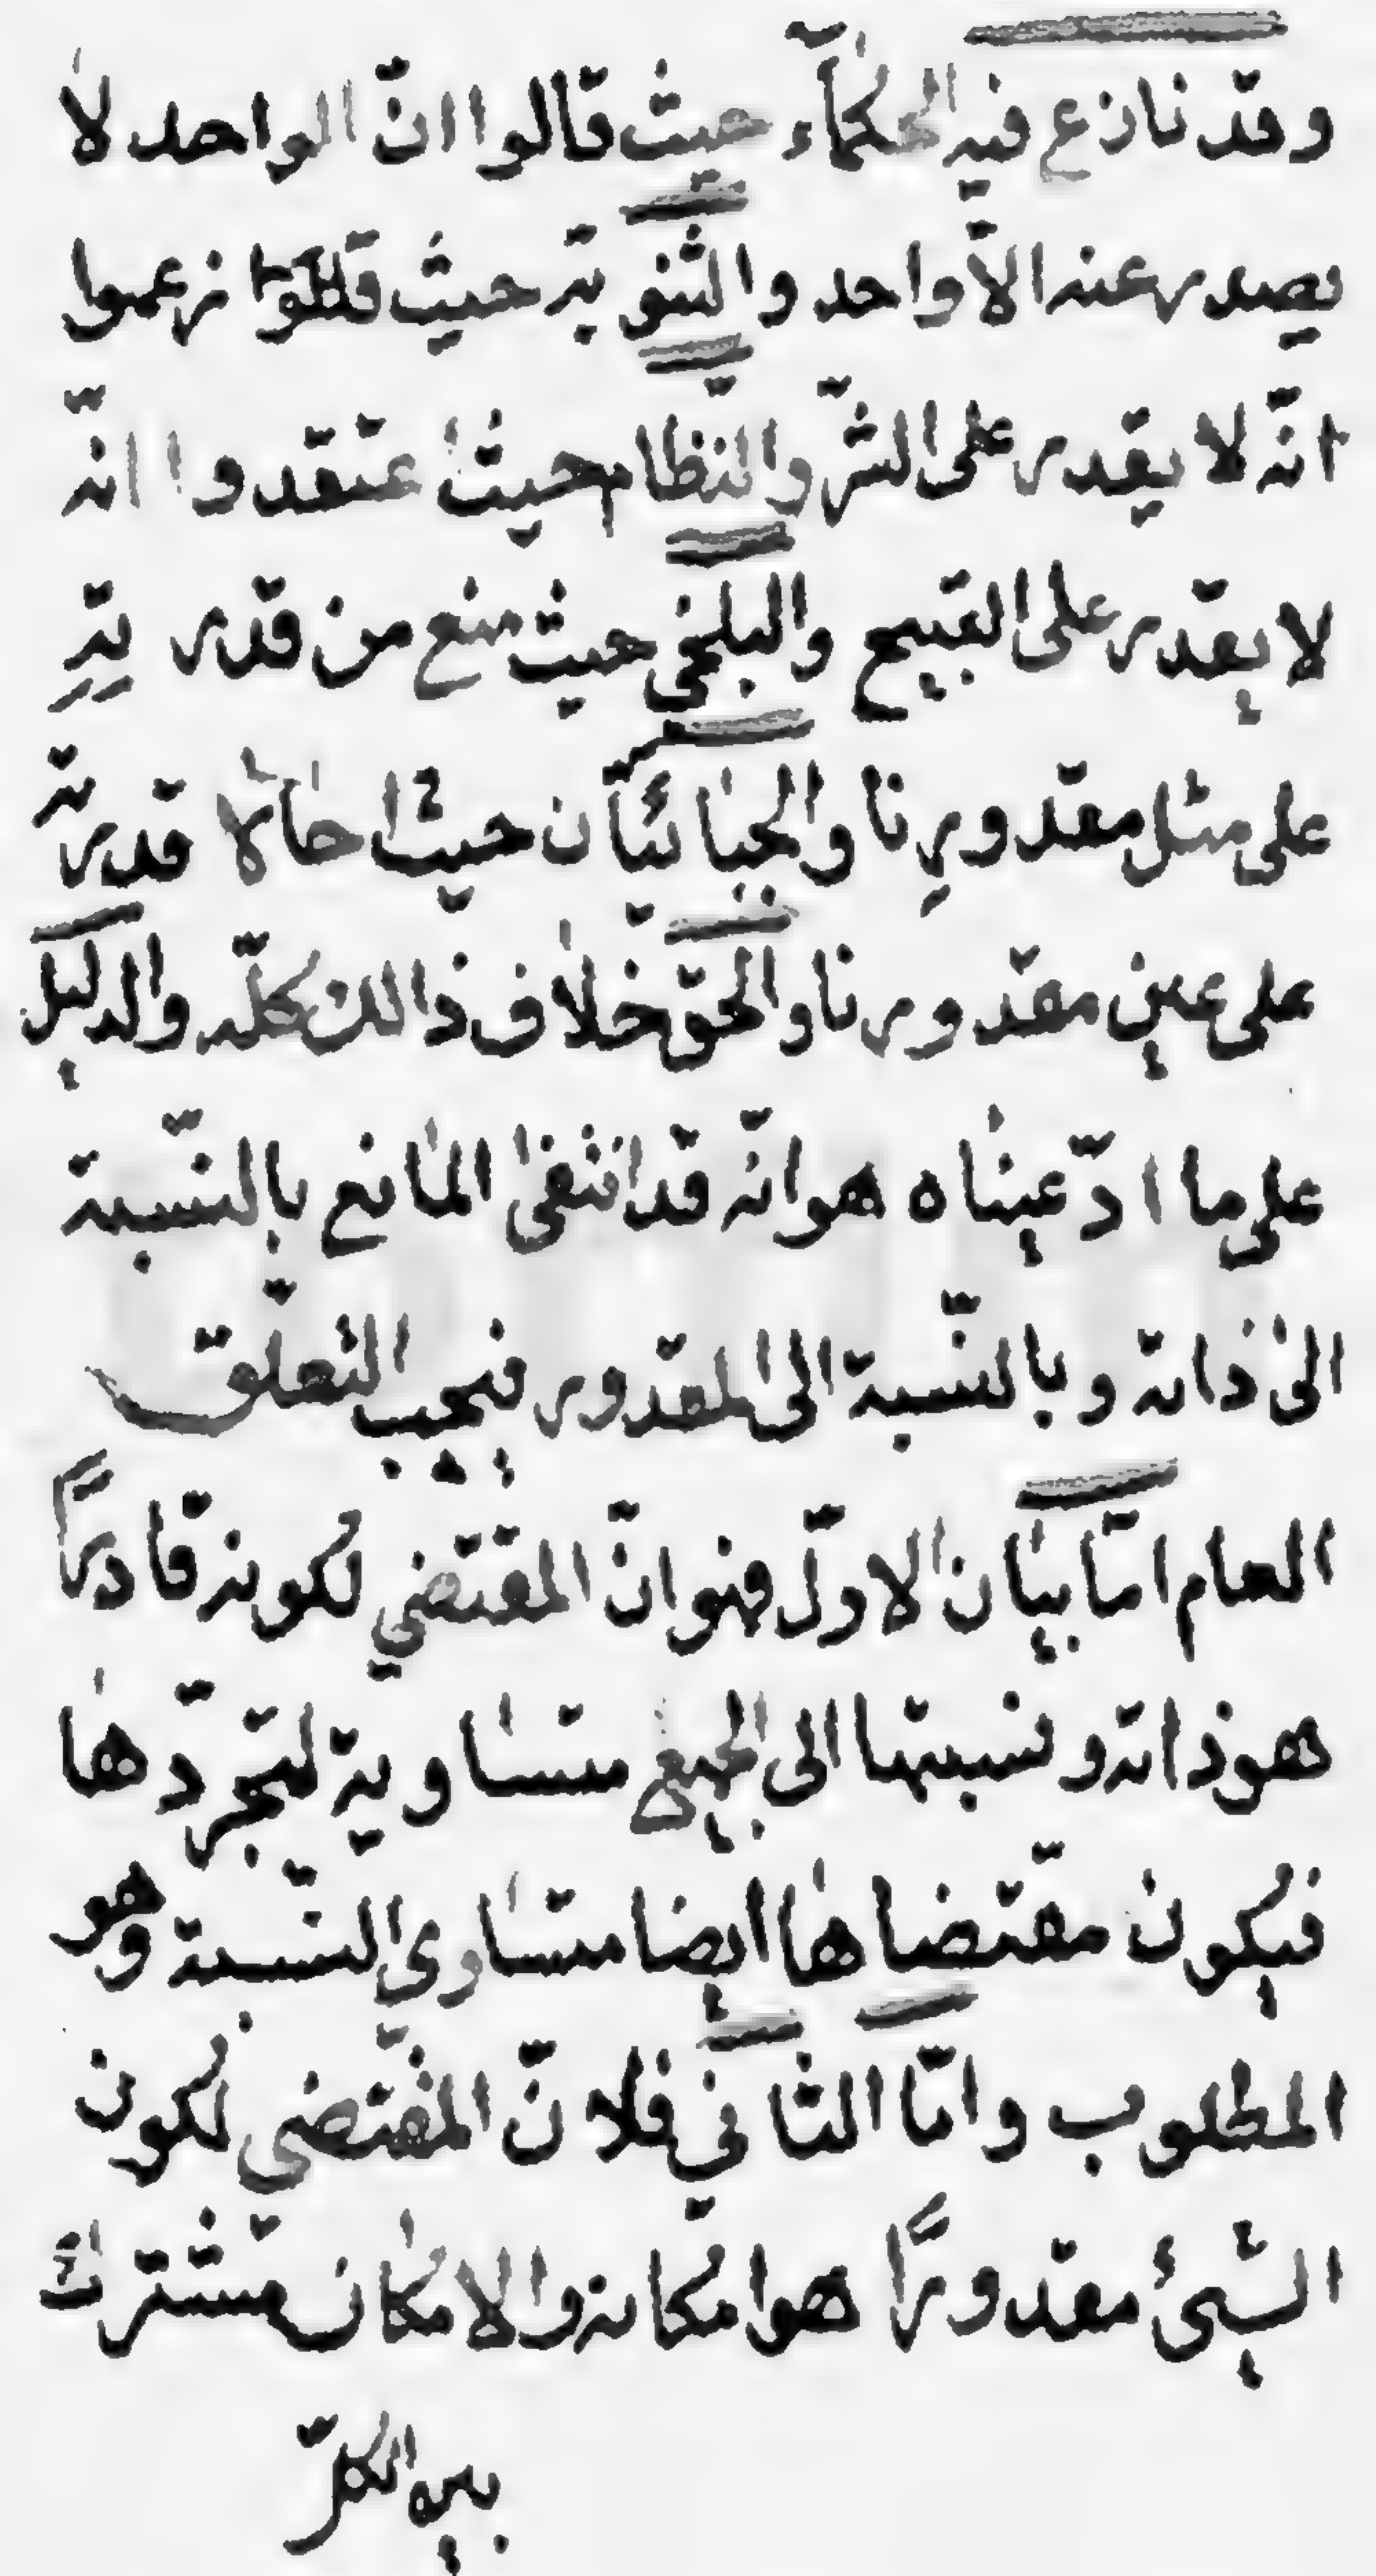 وقد نازع فيه الحكمآء حيث قالوا انّ الواحد لا
يصدر عنه الاّ واحد والثنويّة حيث زعموا
انّه لا يقدر على الشرّ والنّظام حيث اعتقدوا انّه
لا يقدر على القبيح والبلخي حيث منع من قدرتِهِ
على مثل مقدورِنا والجبائيّان حيث احالا قدرته
على عين مقدورنا والحقّ خلاف ذالك كلّه والدليل
على ما ادّعيناه هو انّه قد انتفى المانع بالنّسبة
الى ذاته وبالنّسبة الى المقدور فيجب التعلّق
العام امّا بيان الاوّل فهو انّ المقتضي لكونه قادرًا
هو ذاته ونسبتها الى الجميع متساوية لتجرّدها
فيكون مقتضاها ايضا متساوي النّسبة وهو
المطلوب وامّا الثاني فلانّ المقتضي لكون
الشّيئ مقدورًا هو امكانه والامكان مشترك
بين الكلّ